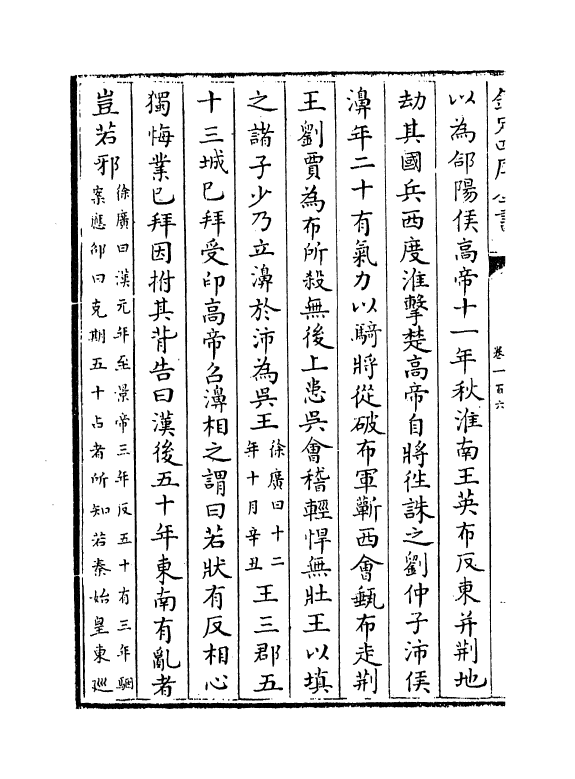 欽定四庫全書
卷一百六
以為郃陽侯高帝十一年秋淮南王英布反東并荆地
劫其國兵西度淮擊楚高帝自將徃誅之劉仲子沛侯
濞年二十有氣力以騎將從破布軍蘄西會甀布走荆
王劉賈為布所殺無後上患吳㑹稽輕悍無壮王以填
之諸子少乃立濞於沛為吳王徐廣曰十二年十月辛丑王三郡五
十三城已拜受印高帝召濞相之謂曰若狀有反相心
獨悔業已拜因拊其背告曰漢後五十年東南有亂者
豈若邪徐廣曰漢元年至景帝三年反五十有三年駰案應邵曰克期五十占者所知若秦始皇東廵